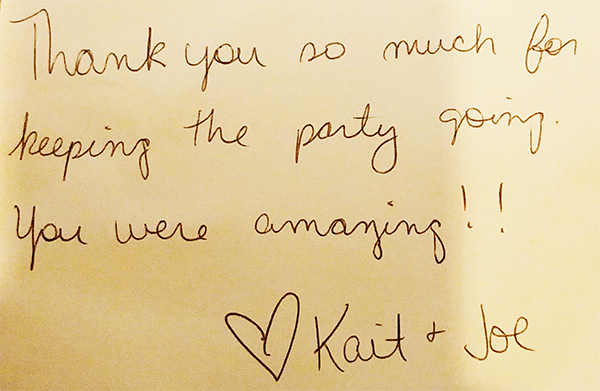 Thank you so much for
keeping the party going.
You were amazing!!
♡ Kait + Joe